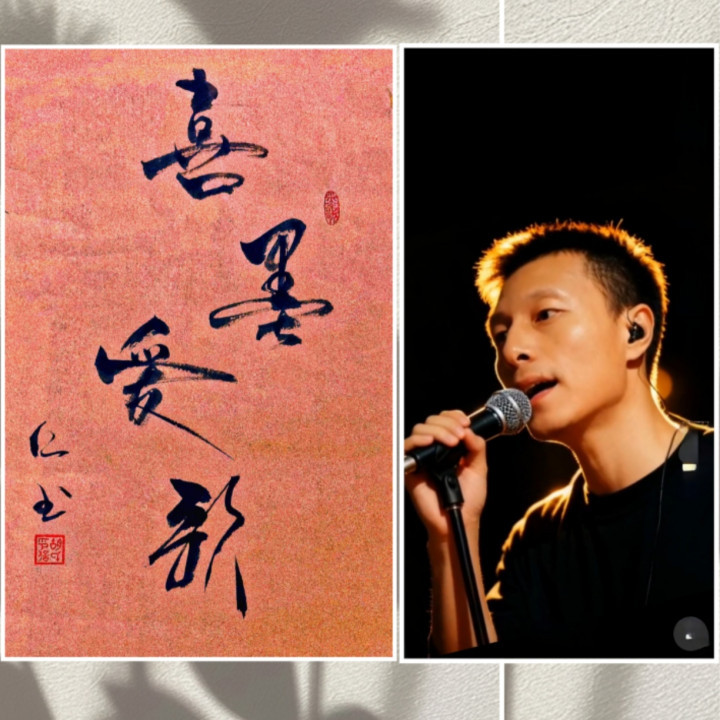 喜
墨
爱
仁书